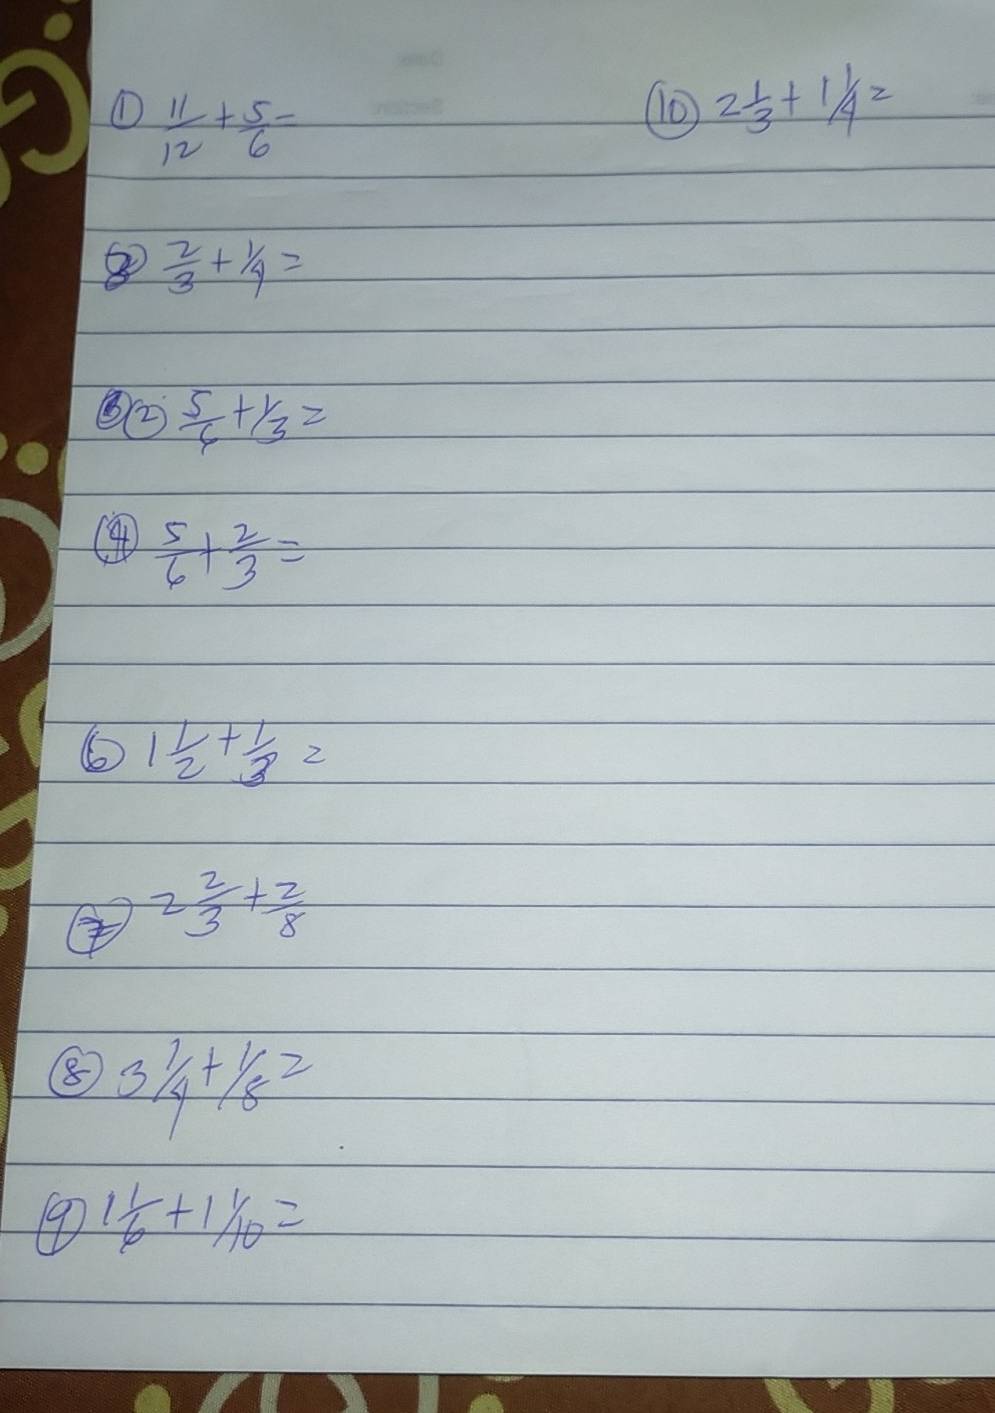 ① 11/12 + 5/6 =
⑩ 2 1/3 + 1 1/4 =
③ 2/3 + 1/4 =
② 5/6 + 1/3 =
④ 5/6 + 2/3 =
⑥ 1 1/2 + 1/3 =
⑦ 2 2/3 + 2/8
⑧ 3 1/4 + 1/8 =
⑨ 1 1/6 + 1 1/10 =